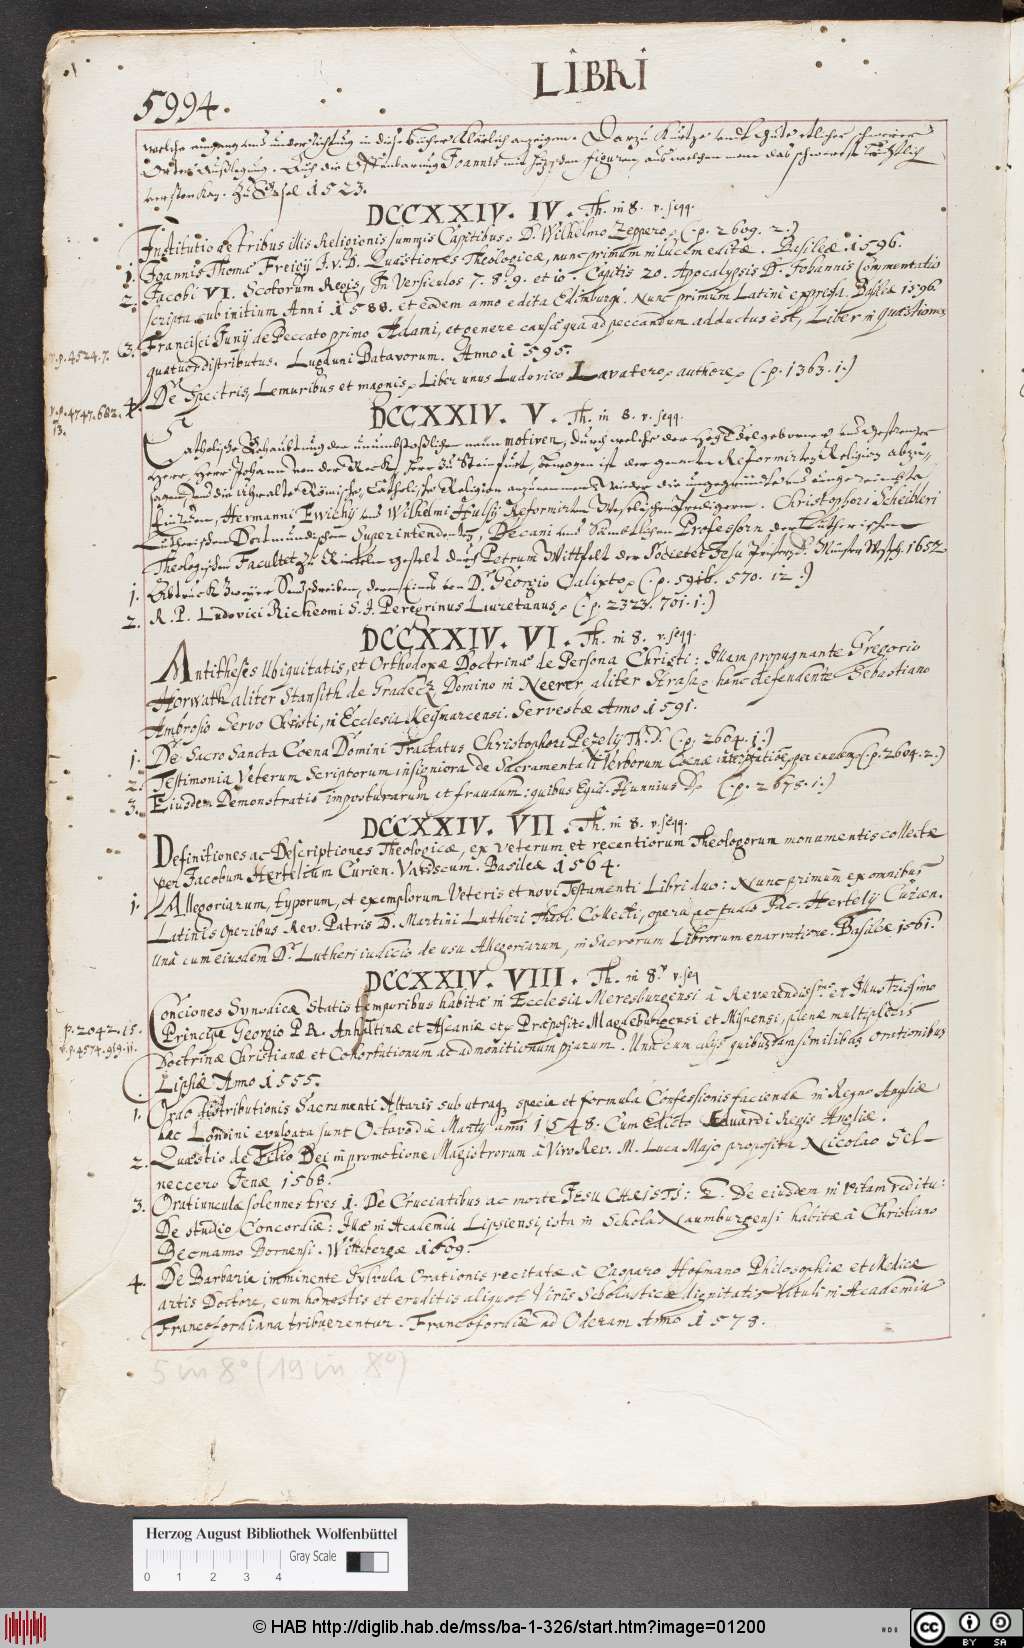 LIBRI
5994.
welche eingang und underrichtung in diese bücher klärlich anzeigen. Darzu kurtze und gute etlicher schwerer
Örter Außlegung. Auch die Offenbarung Joannis mit figuren, aus welchen man das schwerest leichtlich
verstehen kan. Zu Basel 1523.
DCCXXIV. IV. Th. in 8. v. seqq.
Institutio de tribus illis Religionis summis Capitibus. D. Wilhelmo Zeppero. (.p. 2609. 2.)
1. Joannis Thomæ Freigij J.V.D. Quæstiones Theologicæ, nunc primum in lucem editæ. Basileæ 1596.
2. Jacobi VI. Scotorum Regis, In Versiculos 7. 8. 9. et 10. Capitis 20. Apocalypsis D. Johannis Commentatio
scripta sub initium Anni 1588. et eodem anno edita Edinburgi. Nunc primum Latinè expressa. Basileæ 1596
v. p. 4524. 7.
3. Francisci Junij de Peccato primo Adami, et genere causæ qua ad peccandum adductus est, Liber in quæstiones
quatuor distributus. Lugduni Batavorum. Anno 1595.
v. p. 4747. 682.
13.
4. De Spectris, Lemuribus et magnis. Liber unus Ludovico Lavatero. authore. (.p. 1363. 1.)
DCCXXIV. V. Th. in 8. v. seqq.
Catholische Behaubtung der unumbstößlichen neun motiven, durch welche der HochEdelgeborner und Gestrenger
Herr Herr Johann von der Reck, Herr zu Steinfurt, bewogen ist der genenten Reformirten Religion abzu-
sagen, und die Uhralte Römische, Catholische Religion anzunemmen. Wieder die ungegründete und
Hermanni Ewichij und Wilhelmi Hulsij Reformirten Predigern. Christophori Scheibleri
Lutherischen Dortmundischen Superintendenten, Decani und Sämbtlichen Professorn der Lutherischen
Theologischen Facultet zu Rinteln gestelt durch Petrum Wittfelt der Societet Jesu Priestern. Münster Westph. 1652
1. Abtruck zweyer Sendschreiben, deren Eines von D. Georgio Calixto. (.p. 5916. 570. 12.)
2. R. P. Ludovici Richeomi S. J. Peregrinus Lauretanus. (.p. 2323. 701. 1.)
DCCXXIV. VI. Th. in 8. v. seqq.
Antithesis Ubiquitatis, et Orthodoxæ Doctrinæ de Persona Christi: Illam propugnante Gregorio
Horwath aliter Stansith de Gradecz, Domino in Neerer, aliter Strasa. hanc defendente Sebastiano
Ambrosio Servo Christi, in Ecclesia Keismarcensi. Servestæ Anno 1591.
1. De Sacro Sancta Cœna Domini Tractatus Christophori Pezelij Th. D. (.p. 2604. 1.)
2. Testimonia Veterum Scriptorum insigniora de Sacramentali Verborum Cœnæ interptatiõe, per eundem (.p. 2604. 2.)
3. Eiusdem Demonstratio imposturarum et fraudum: quibus Egid. Hunnius D. (.p. 2678. 1.)
DCCXXIV. VII. Th. in 8. v. seqq.
Definitiones ac Descriptiones Theologicæ, ex Veterum et recentiorum Theologorum monumentis collectæ
per Jacobum Hertelium Curien. Variscum. Basileæ 1564.
1. Allegoriarum, typorum, et exemplorum Veteris et novi Testamenti Libri duo: Nunc primum ex omnibus
Latinis Operibus Rev. Patris D. Martini Lutheri Theol. Collecti, opera ac studio Jac. Hertelij Curien.
Unà cum eiusdem D. Lutheri iudicio de usu Allegoriarum, in Sacrorum Librorum enarratione. Basileæ 1561.
DCCXXIV. VIII. Th. in 8. v. seq
Conciones Synodicæ Statis temporibus habitæ in Ecclesia Mersburgensi à Reverendiss. et Illustrissimo
p. 2042. 15.
v. p. 4574. 969. 11.
Principe Georgio PR. Anhaltinæ et Ascaniæ etc Præposito Magdeburgensi et Misnensi, plenæ multiplicis
Doctrinæ Christianæ et Cohortationum ac admonitionum piarum. Unà cum alijs quibusdam similibus orationibus
Lipsiæ Anno 1555.
1. Ordo distributionis Sacramenti Altaris sub utraq specie et formula Confessionis faciendæ in Regno Angliæ
hæc Londini evulgata sunt Octavo die Martij anni 1548. Cum Edicto Eduardi Regis Angliæ.
2. Quæstio de Filio Dei in promotione Magistrorum à Viro Rev. M. Luca Majo proposita Nicolao Sel-
neccero Jenæ 1568.
3. Oratiunculæ solennes tres 1. De Cruciatibus ac morte JESU CHRISTI: 2. De eiusdem in vitam reditu:
De studio Concordiæ: Illæ in Academia Lipsiensi, ista in Schola Naumburgensi habitæ à Christiano
Becmanno Bornensi. Wittebergæ 1609.
4. De Barbarie imminente Sylvula Orationis recitatæ à Casparo Hofmano Philosophiæ et Medicæ
artis Doctore, cum honestis et eruditis aliquot Viris Scholasticæ dignitatis tituli in Academia
Francofordiana tribuerentur. Francofordiæ ad Oderam Anno 1578.
5 in 8° (19 in 8°)
Herzog August Bibliothek Wolfenbüttel
Gray Scale
0 1 2 3 4
© HAB http://diglib.hab.de/mss/ba-1-326/start.htm?image=01200
cc BY SA